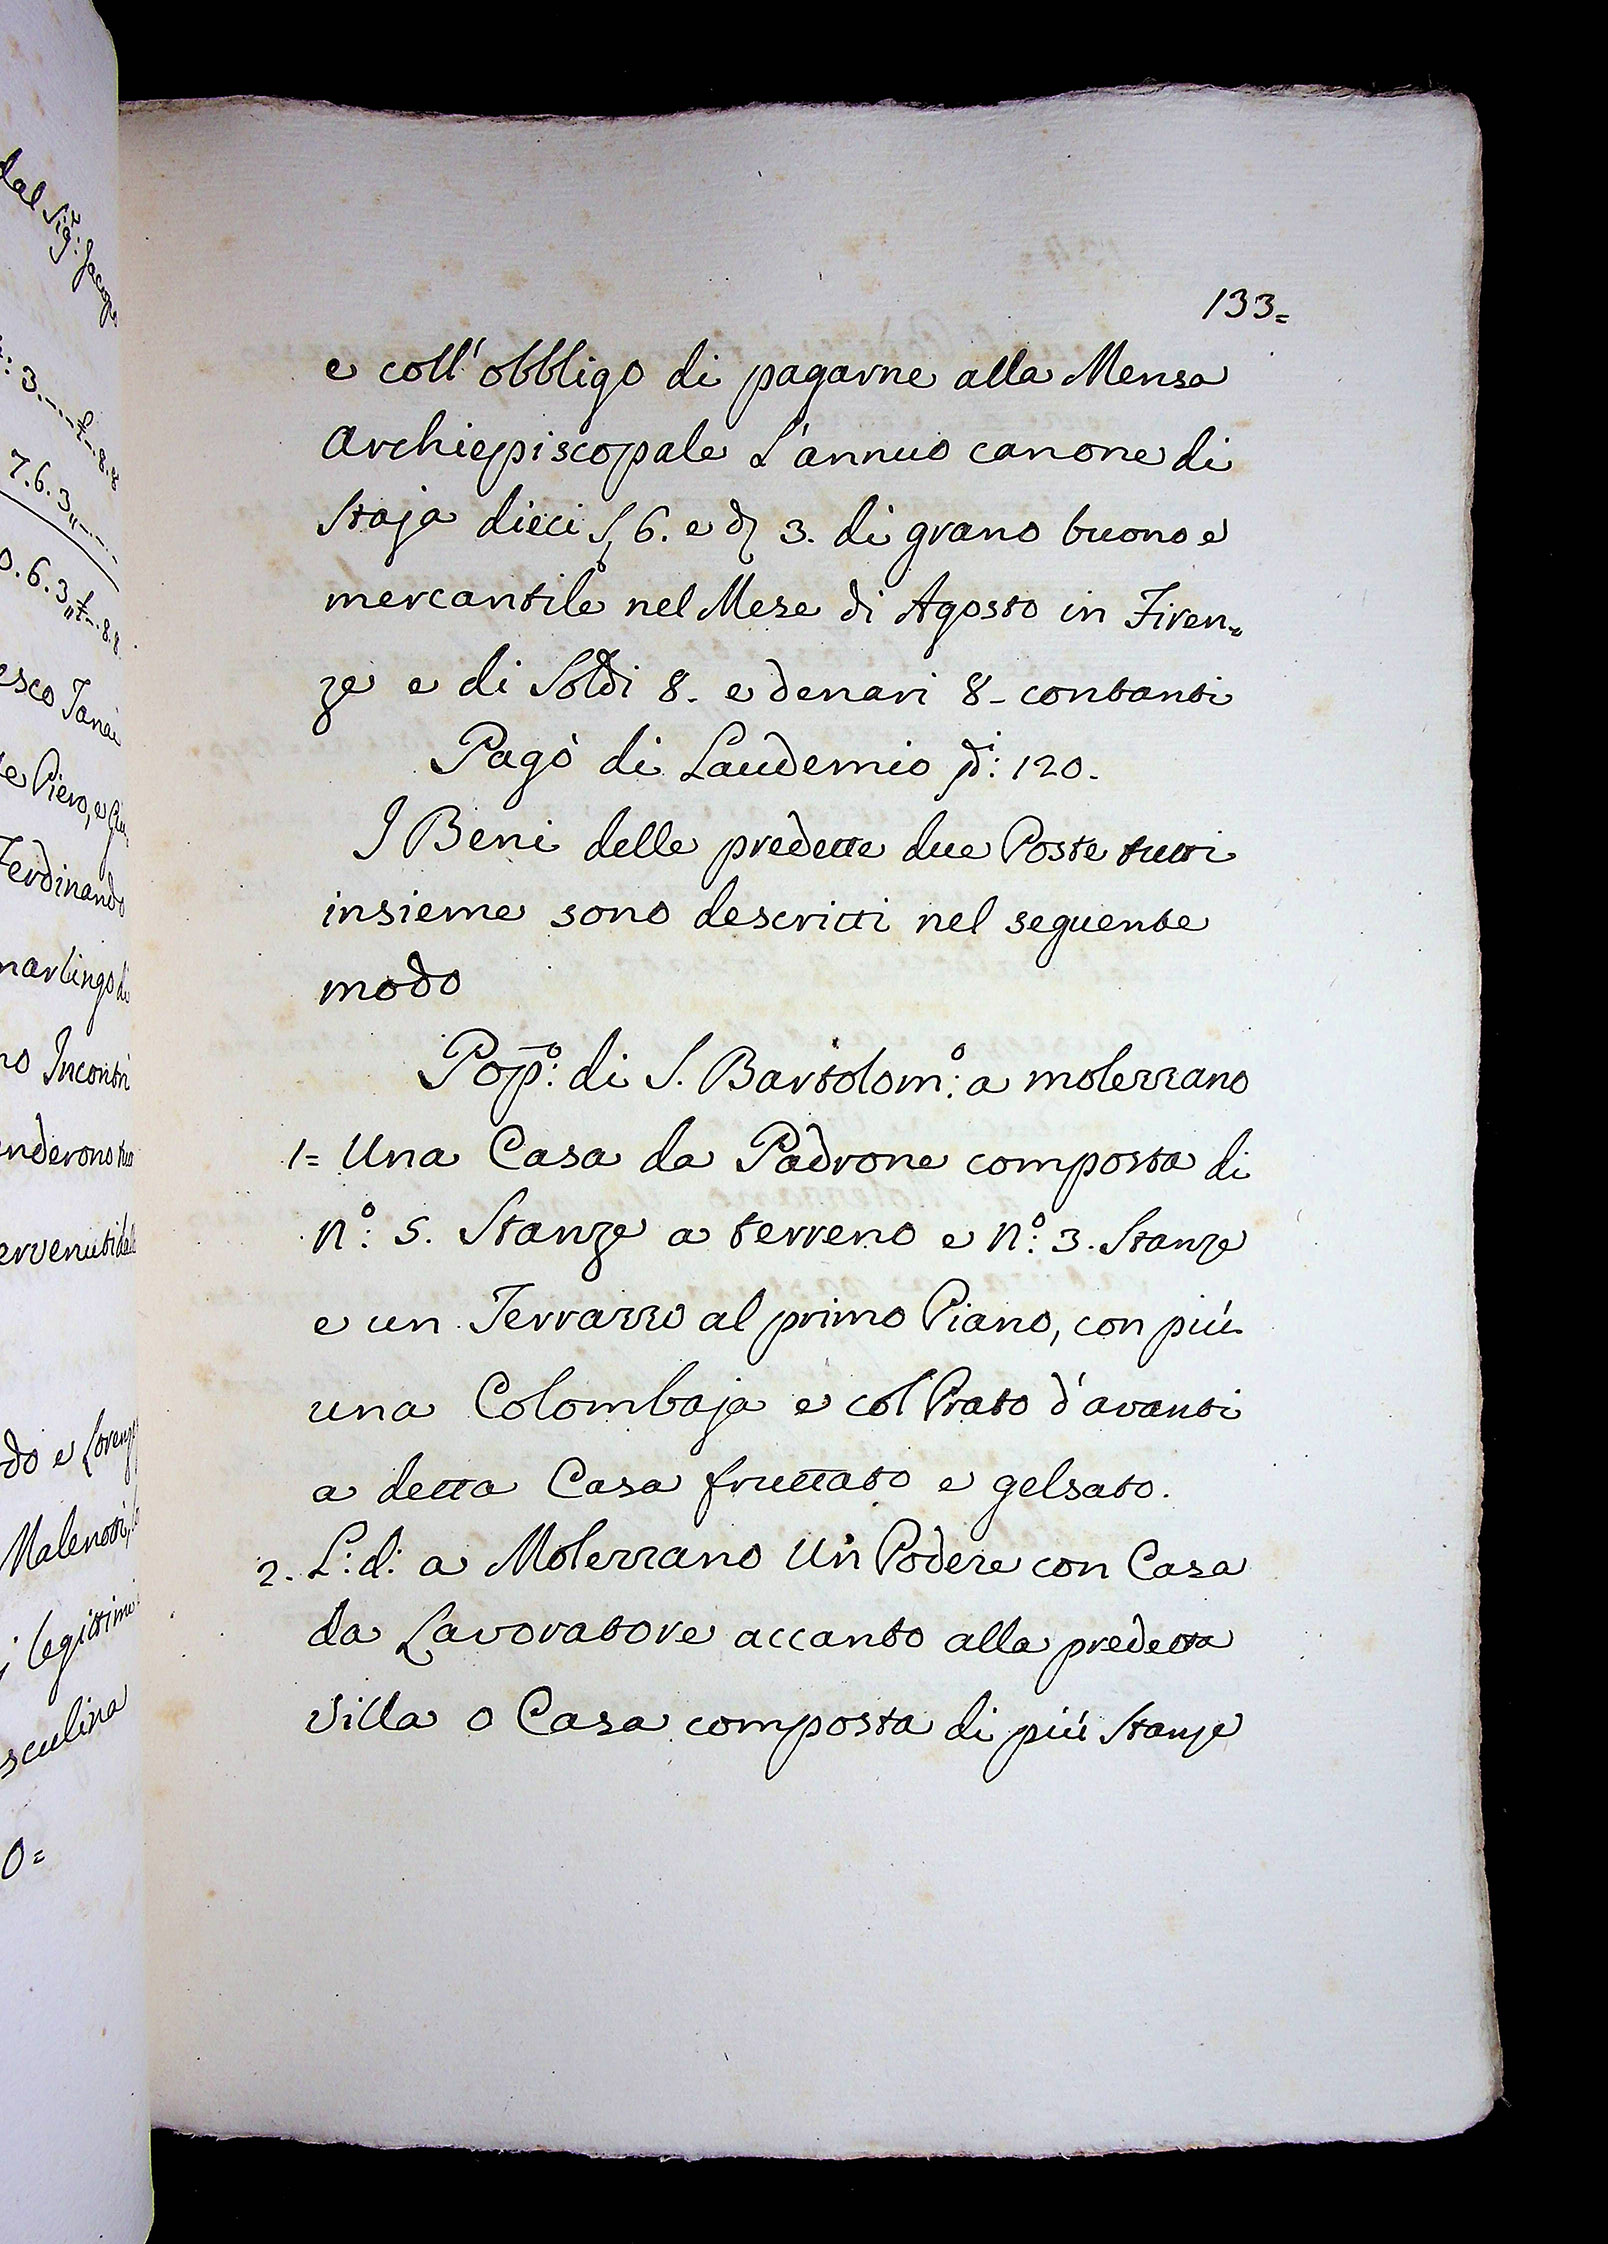 133=
e coll' obbligo di pagarne alla Mensa
Archiepiscopale L'annuo canone di
Staja dieci S 6. e d 3. di grano buono e
mercantile nel Mese di Agosto in Firen=
ze e di Soldi 8- e denari 8- contanti
Pagò di Laudemio 120-
I Beni delle predette due Poste tutti
insieme sono descritti nel seguente
modo
Pop:º di S. Bartolom:º a molezzano
1= Una Casa da Padrone composta di
Nº: 5. Stanze a terreno e Nº: 3. Stanze
e un Terrazzo al primo Piano, con più
una Colombaja e col Prato d'avanti
a detta Casa fruttato e gelsato.
2. L: d: a Molezzano Un Podere con Casa
da Lavoratore accanto alla predetta
Villa o Casa composta di più Stanze
dal Sigr:
3....8.8
7.6.3
.6.3 8.8
Piero, e
Ferdinando
Incontri
e Loren
legittimi
0=